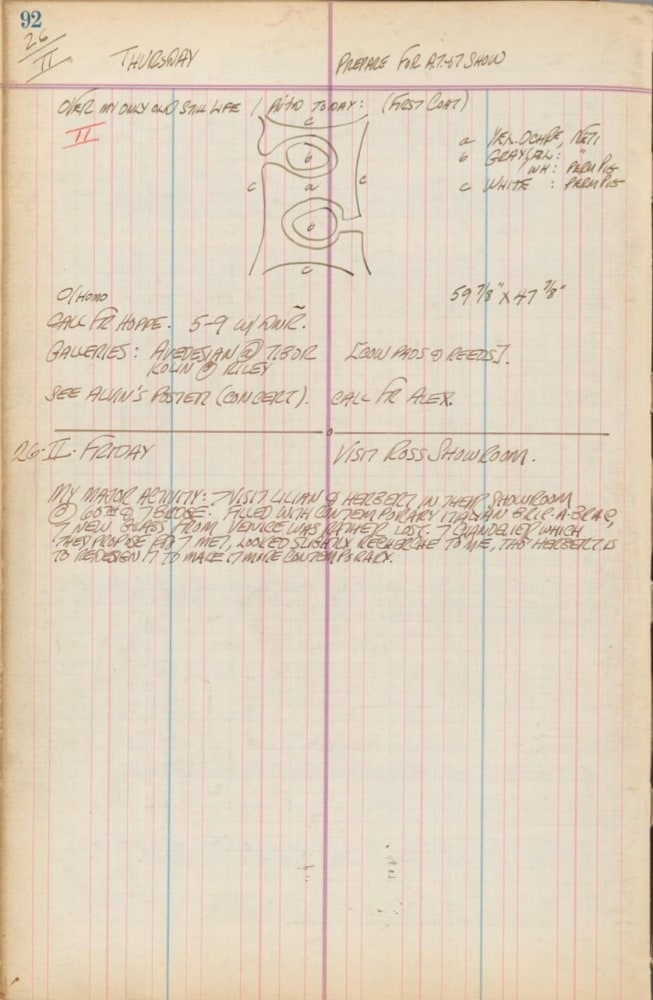 92
26
II
THURSDAY
PREPARE FOR SHOW
OVER MY ONLY OLD STILL LIFE / TODAY: (FIRST COAT)
II
c
b
c
a
c
b
c
a YEL. OCHRE,
b GRAY
WH: PERM PIG
c WHITE : PERM PIG
59 7/8" X 47 7/8"
CALL FR HOPPE. 5-9 W/
GALLERIES: AVEDESIAN @ TIBOR
KOLIN @ RILEY
SEE ALVIN'S POSTER (CONCERT). CALL FR ALEX.
26-II-FRIDAY
VISIT ROSS SHOWROOM.
MY MAJOR ACTIVITY: 7 VISIT LILIAN & HERBERT IN THEIR SHOWROOM
@ 60TH & FILLED WITH CONTEMPORARY ITALIAN BRIC-A-BRAC,
7 NEW GLASS FROM VENICE WAS RATHER LOST. 7 CHANDELIER WHICH
THEY PROPOSE FOR 7 MET, LOOKED SLIGHTLY RECHERCHE TO ME, THO HERBERT IS
TO REDESIGN IT TO MAKE IT MORE CONTEMPORARY.